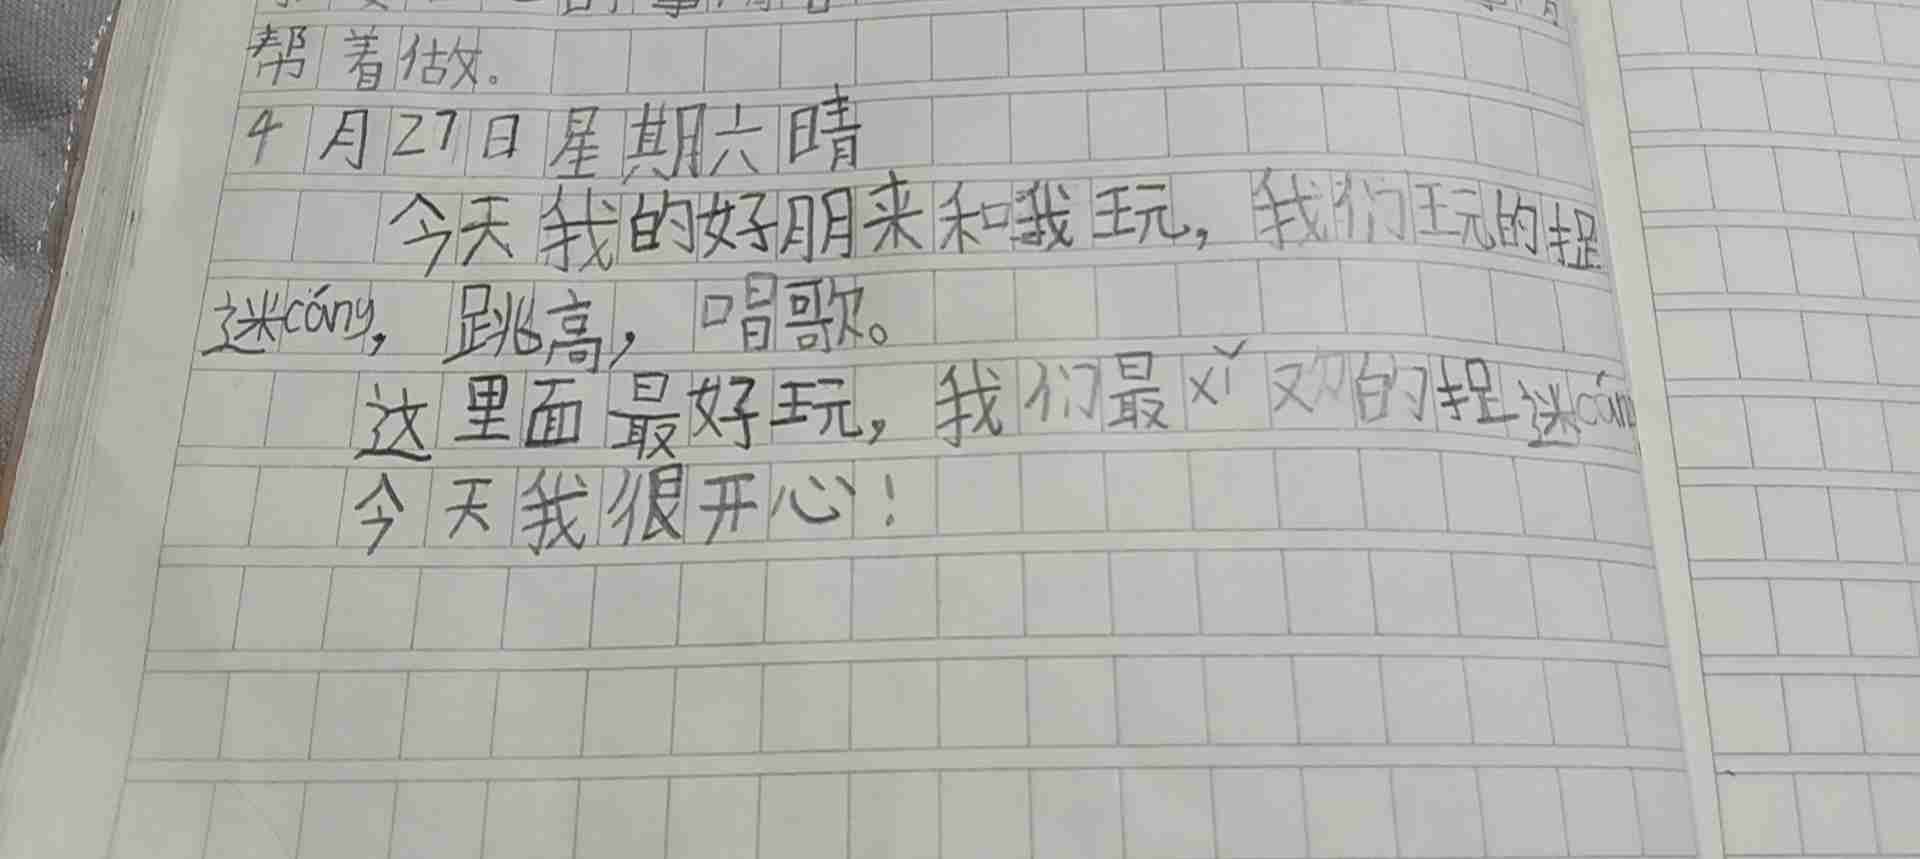 帮着做。
4月27日星期六晴
今天我的好朋来和我玩，我们玩的捉
迷cáng，跳高，唱歌。
这里面最好玩，我们最xǐ欢的捉迷cáng
今天我很开心！